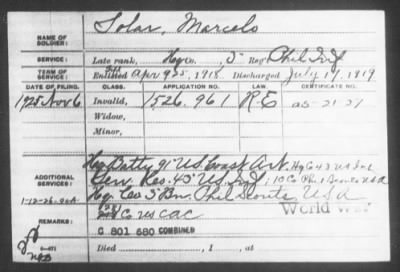 NAME OF SOLDIER: Solar, Marcelo
SERVICE: Late rank, Hq Co., 5" Reg't Phil Inf
TERM OF SERVICE: Enlisted Apr 9 1918. Discharged July 17, 1919
DATE OF FILING. CLASS. APPLICATION NO. LAW. CERTIFICATE NO.
1925 Nov 6 Invalid, 1526.961 R-E
Widow,
Minor,
Hq Batty 91" U.S. Coast Art. Hq Co 43 US Inf
ADDITIONAL SERVICES: Gen. Res. 45" U.S. Inf;
Hq. Co. 5" Bn. Phil Scouts, U.S.A
1-12-26
World War
REMARKS: Co US CAC
C 801 680 COMBINED
Died , 1 , at